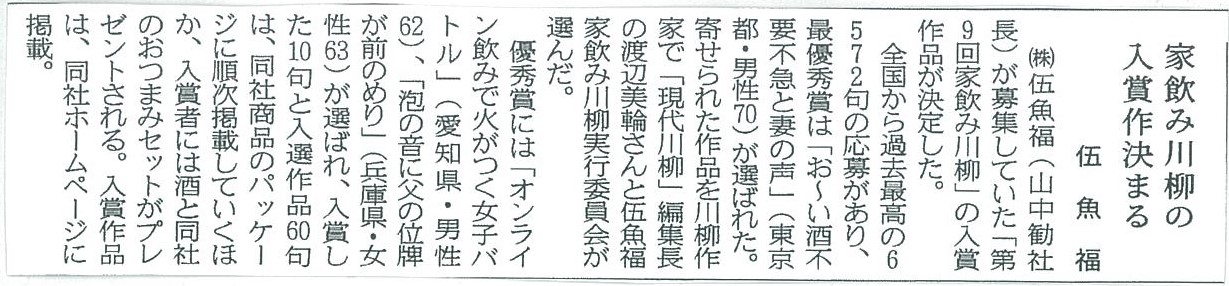 家飲み川柳の
入賞作決まる
伍魚福
㈱伍魚福（山中勧社
長）が募集していた「第
9回家飲み川柳」の入賞
作品が決定した。
全国から過去最高の6
572句の応募があり、
最優秀賞は「お～い酒不
要不急と妻の声」（東京
都・男性70）が選ばれた。
寄せられた作品を川柳作
家で「現代川柳」編集長
の渡辺美輪さんと伍魚福
家飲み川柳実行委員会が
選んだ。
優秀賞には「オンライ
ン飲みで火がつく女子バ
トル」（愛知県・男性
62）、「泡の音に父の位牌
が前のめり」（兵庫県・女
性63）が選ばれ、入賞し
た10句と入選作品60句
は、同社商品のパッケー
ジに順次掲載していくほ
か、入賞者には酒と同社
のおつまみセットがプレ
ゼントされる。入賞作品
は、同社ホームページに
掲載。